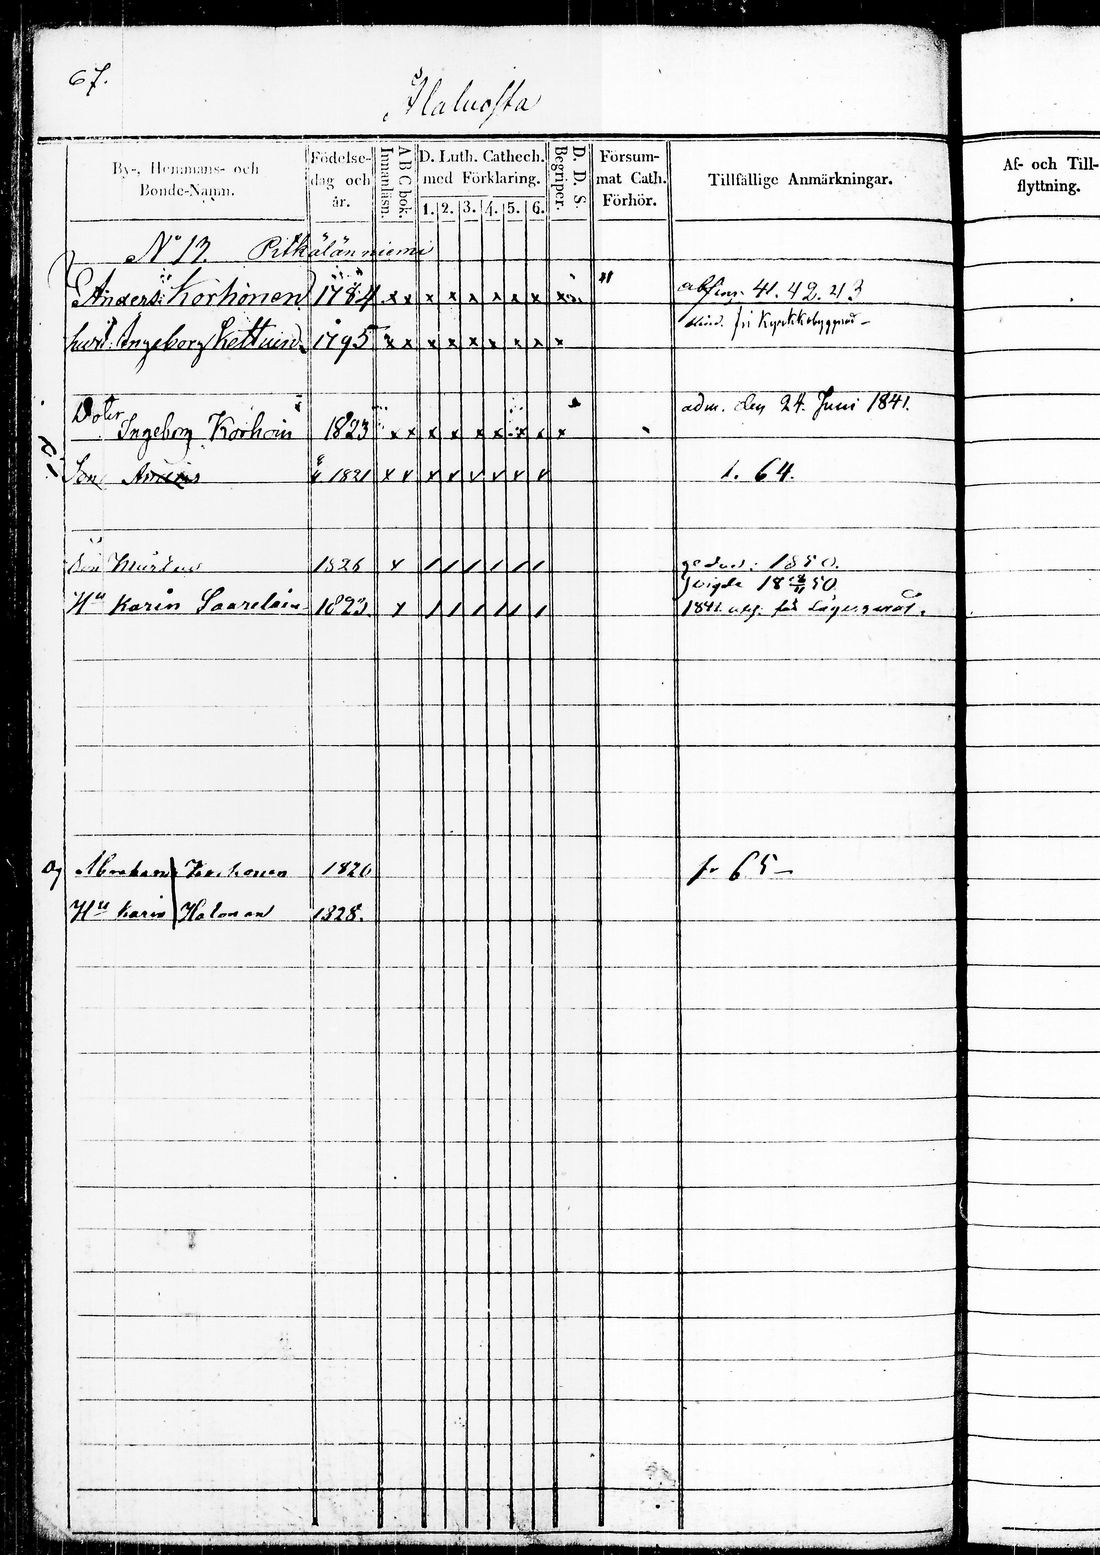 67.
Halvosta
By-, Hemmans- och Bonde-Namn.
Födelse-dag och år.
Innanläsn.
A B C bok.
D. Luth. Cathech. med Förklaring.
1. 2. 3. 4. 5. 6.
Begriper.
D. D. S.
Försum-mat Cath. Förhör.
Tillfällige Anmärkningar.
Af- och Till-flyttning.
N:o 13. Pitkälänniemi
Anders Korhonen 1784 x x x x x x x x x " 41. 42. 43
hust: Ingeborg Kettuin 1795 x x x x x x x x x
Doter adm. den 24. Juni 1841.
Ingeborg Korhoin 1823 x x x x x x x x x
Son 1821 x v x v v v v v t. 64.
Son Mårten 1826 x / / / / / / 1850.
Hu Karin Saarelain 1823 x / / / / / / vigde 18 50
Abraham Korhonen 1820 fr 65 –
Hu Karin Halonen 1828.